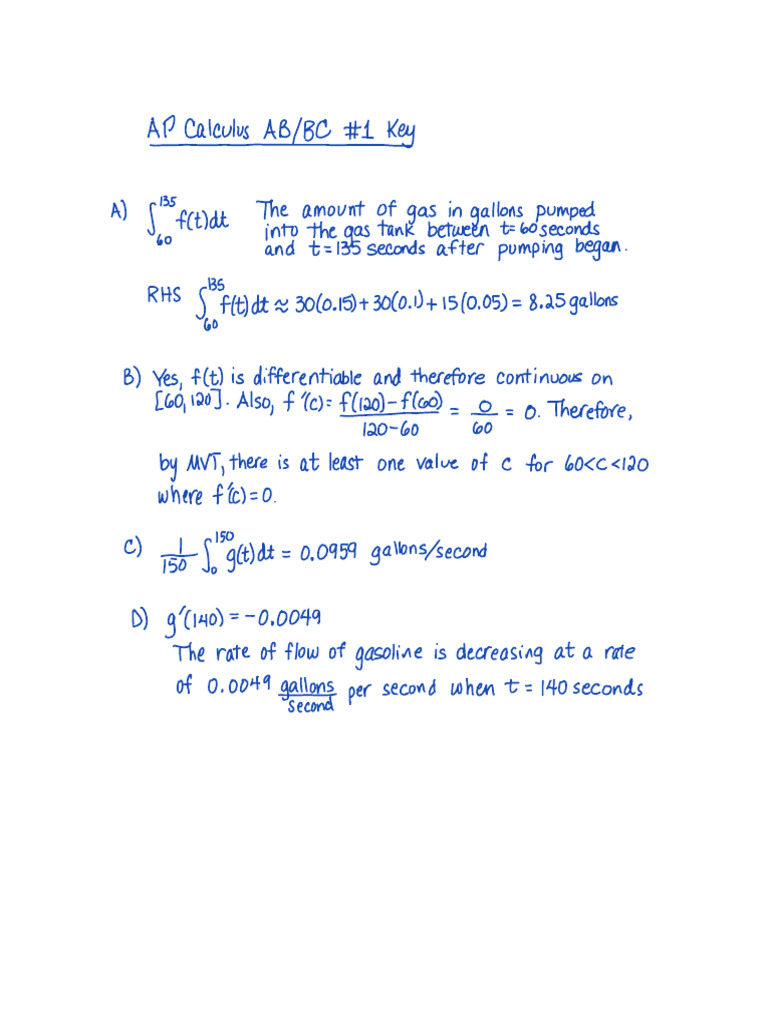 AP Calculus AB/BC #1 Key
A) ∫₆₀¹³⁵ f(t)dt The amount of gas in gallons pumped
into the gas tank between t=60 seconds
and t=135 seconds after pumping began.
RHS ∫₆₀¹³⁵ f(t)dt ≈ 30(0.15)+30(0.1)+15(0.05) = 8.25 gallons
B) Yes, f(t) is differentiable and therefore continuous on
[60,120]. Also, f'(c) = (f(120)-f(60))/(120-60) = 0/60 = 0. Therefore,
by MVT, there is at least one value of c for 60<c<120
where f'(c)=0.
C) 1/150 ∫₀¹⁵⁰ g(t)dt = 0.0959 gallons/second
D) g'(140) = -0.0049
The rate of flow of gasoline is decreasing at a rate
of 0.0049 gallons/second per second when t = 140 seconds